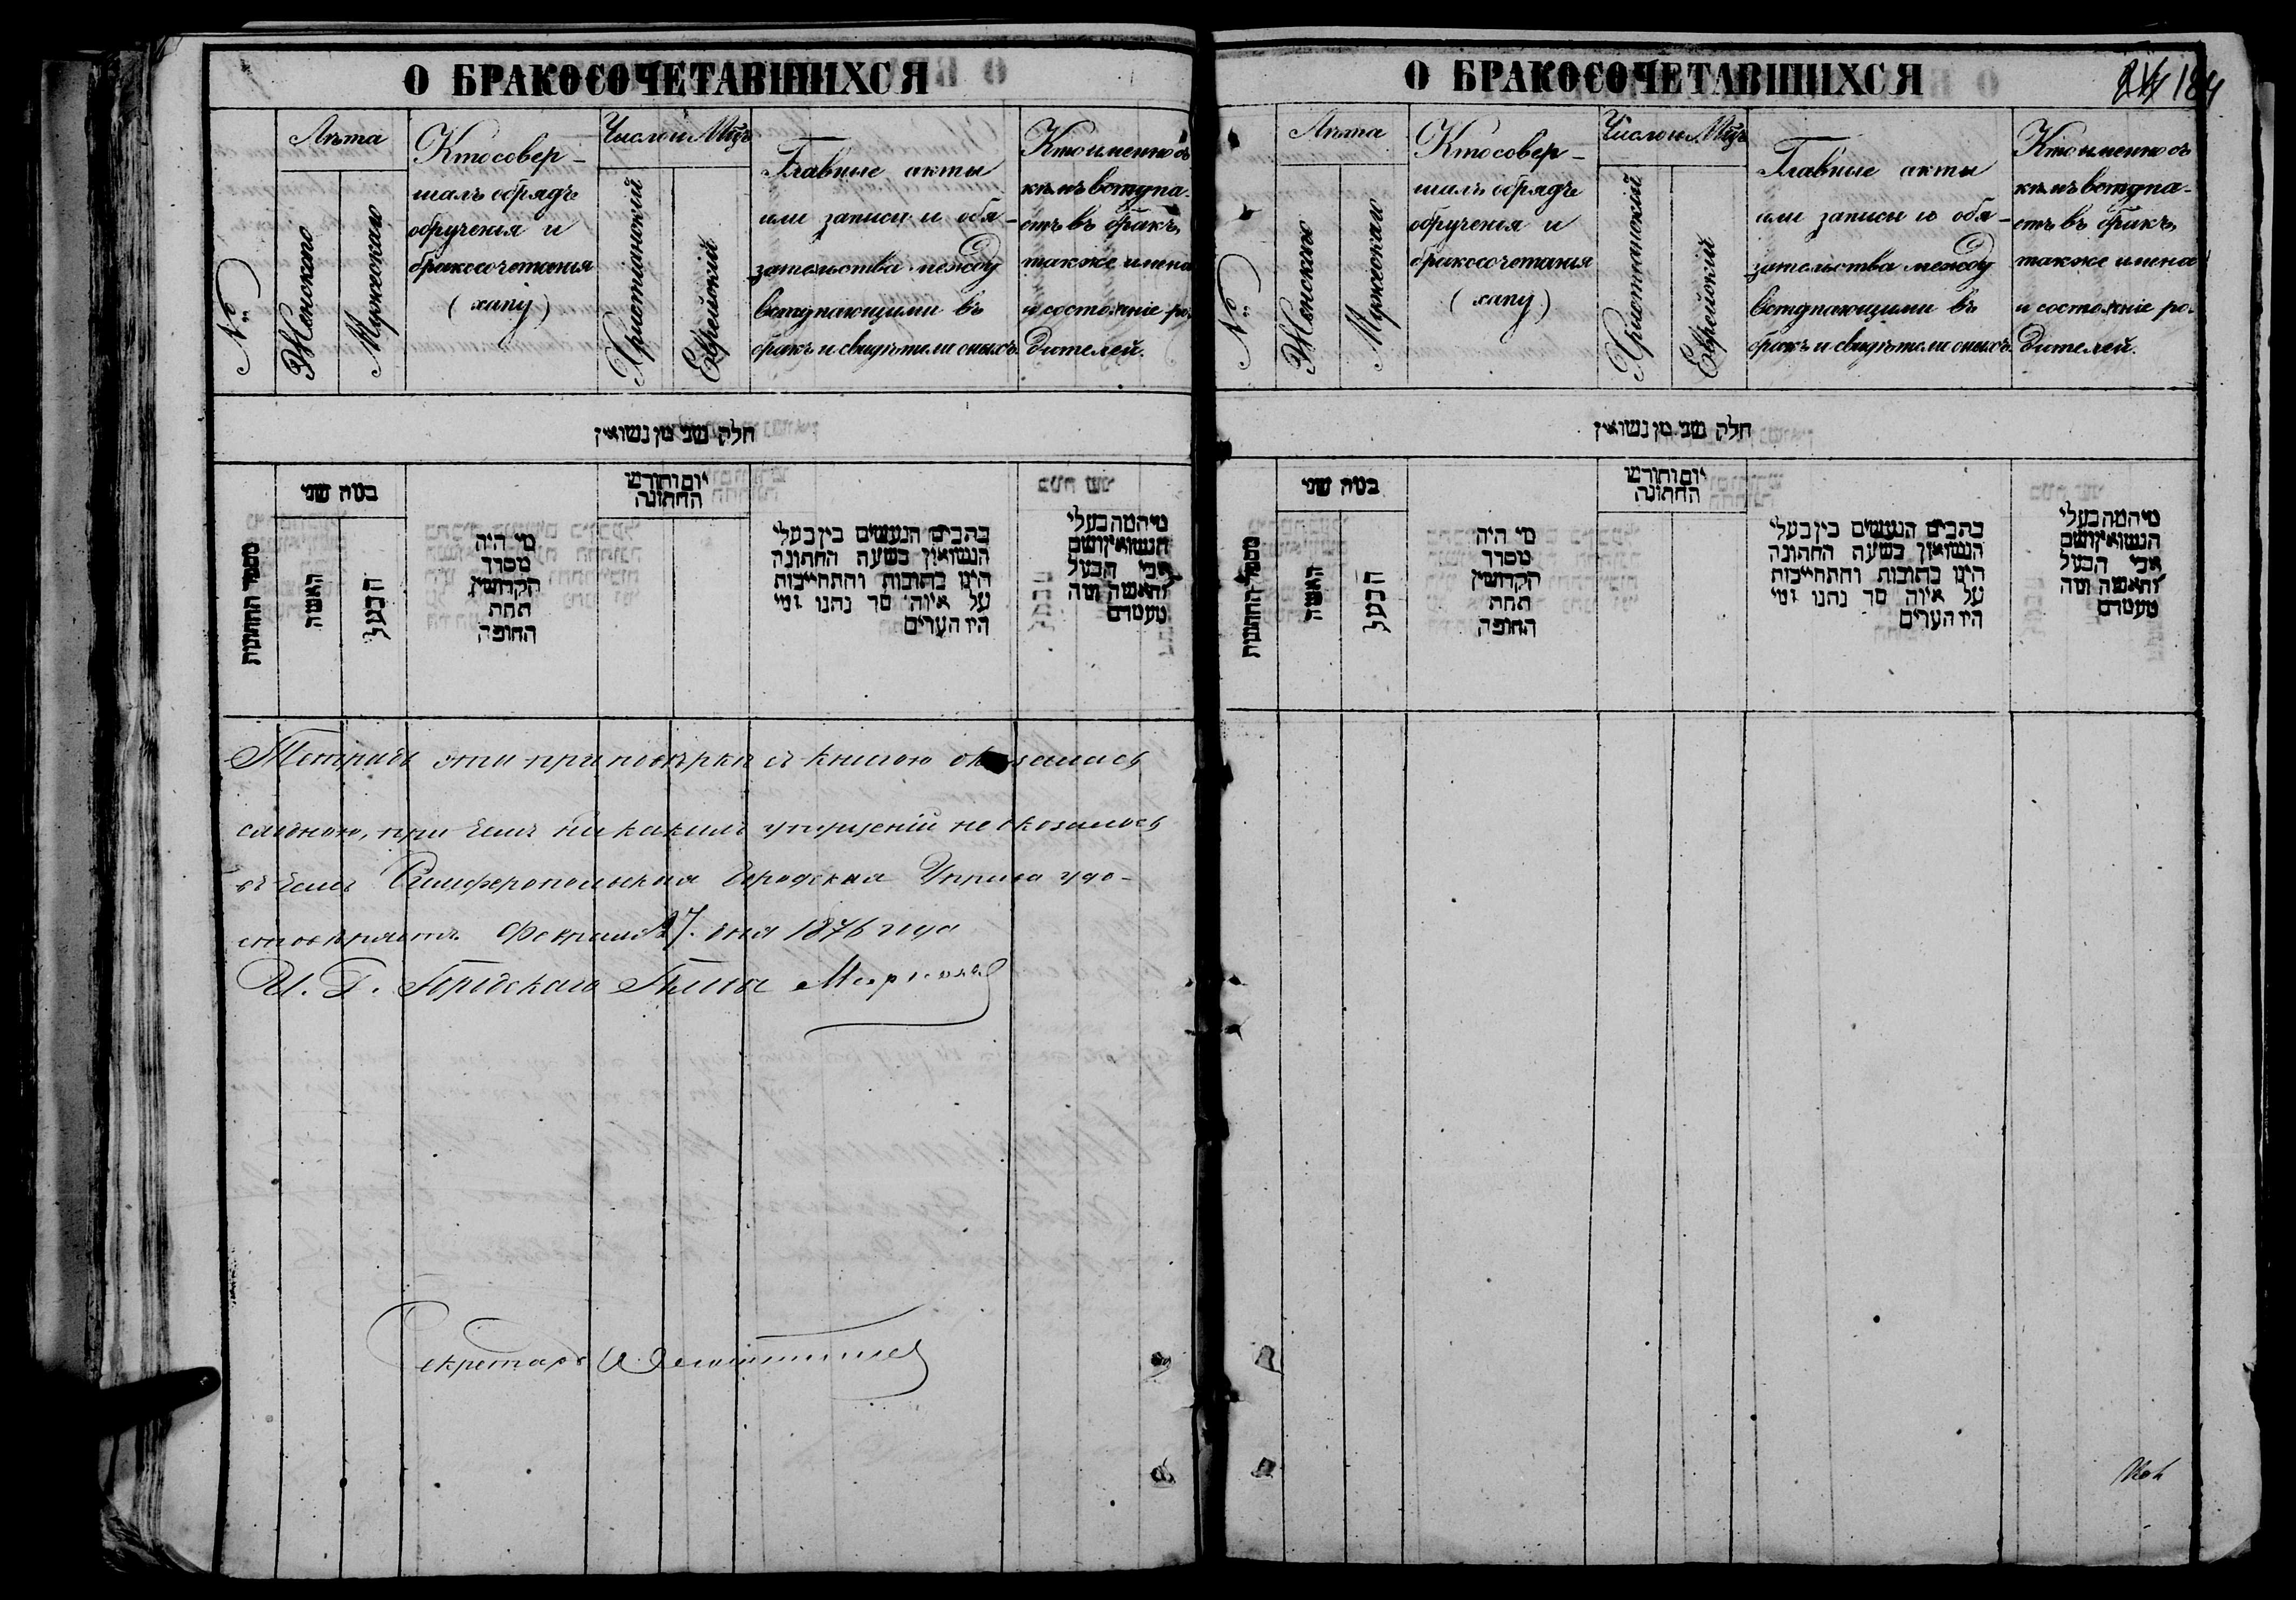 О БРАКОСОЧЕТАВШИХСЯ
№
Лѣта
Женскаго
Мужескаго
Кто совер-
шалъ обрядъ
обрученія и
бракосочетанія
(хапу)
Число и Мцъ
Христіанскій
Еврейскій
Главные акты
или записи и обя-
зательства между
вступающими въ
бракъ и свидѣтели оныхъ.
Кто именно съ
кѣмъ вступа-
етъ въ бракъ,
также имена
и состояніе ро-
дителей.
חלק שני מן נשואין
מספר החתונות
כמה שני
האשה
הבעל
מי היה
מסדר
הקדושין
תחת
החופה
יום וחודש
החתונה
כתבים הנעשים בין בעלי
הנשואין בשעה החתונה
היינו כתובות והתחייבות
על איזה סך נתנו ומי
היו העדים
מי המה בעלי
הנשואין ושם
אבי הבעל
והאשה ומה
מעמדם
Тетрадь эта при повѣркѣ съ книгою оказалась
сходною, при чемъ никакихъ упущеній не оказалось
въ чемъ Симферопольская Городская Управа удо-
стовѣряетъ. Февраля 27. дня 1876 года
И. Д. Городскаго Головы
Секретарь
О БРАКОСОЧЕТАВШИХСЯ
184
№
Лѣта
Женскаго
Мужескаго
Кто совер-
шалъ обрядъ
обрученія и
бракосочетанія
(хапу)
Число и Мцъ
Христіанскій
Еврейскій
Главные акты
или записи и обя-
зательства между
вступающими въ
бракъ и свидѣтели оныхъ.
Кто именно съ
кѣмъ вступа-
етъ въ бракъ,
также имена
и состояніе ро-
дителей.
חלק שני מן נשואין
מספר החתונות
כמה שני
האשה
הבעל
מי היה
מסדר
הקדושין
תחת
החופה
יום וחודש
החתונה
כתבים הנעשים בין בעלי
הנשואין בשעה החתונה
היינו כתובות והתחייבות
על איזה סך נתנו ומי
היו העדים
מי המה בעלי
הנשואין ושם
אבי הבעל
והאשה ומה
מעמדם